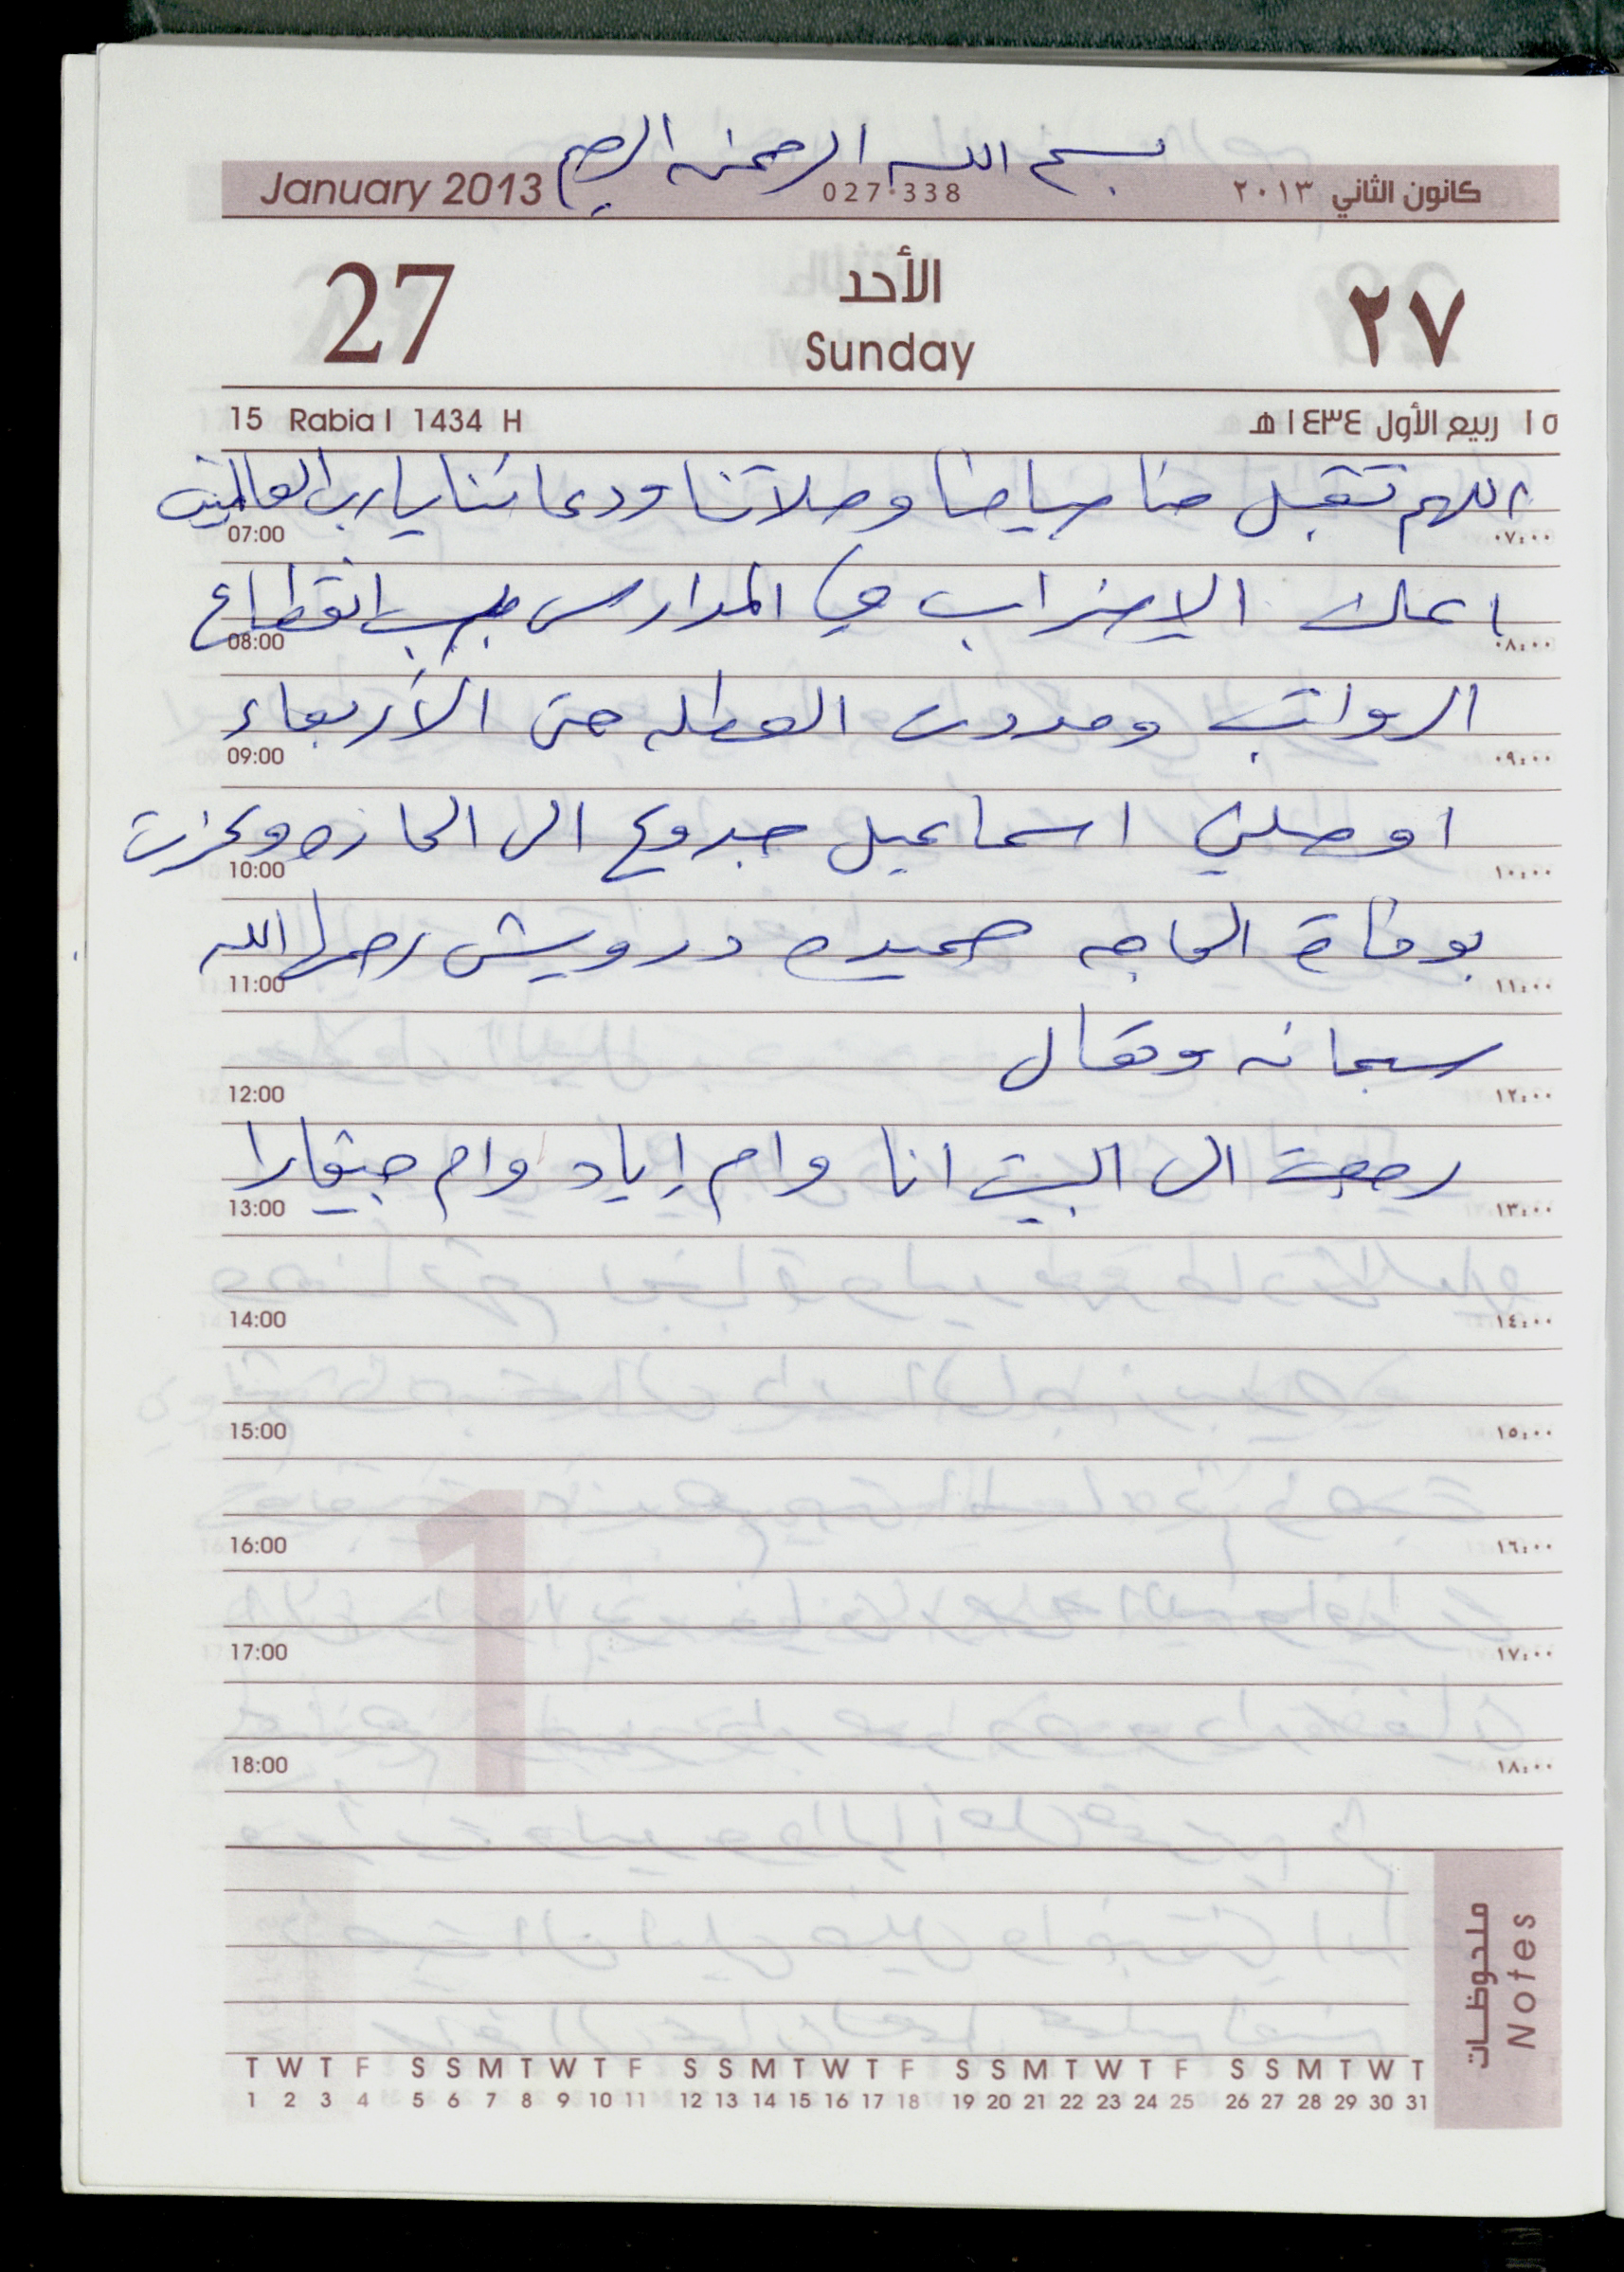 بسم الله الرحمن الرحيم
January 2013 027·338 كانون الثاني ٢٠١٣
27 الأحد ٢٧
Sunday
15 Rabia I 1434 H ١٥ ربيع الأول ١٤٣٤ هـ
اللهم تقبل منا صيامنا وصلاتنا ودعائنا يا رب العالمين
07:00 ٠٧:٠٠
اعلان الإضراب في المدارس بسبب انقطاع
08:00 ٠٨:٠٠
الرواتب ومددت العطله حتى الأربعاء
09:00 ٠٩:٠٠
اوصلني اسماعيل جدوع الى الحاره وعزيت
10:00 ١٠:٠٠
بوفاة الحاجه حميده درويش رحمها الله
11:00 ١١:٠٠
سبحانه وتعالى
12:00 ١٢:٠٠
رجعت الى البيت انا وام إياد وام جيفارا
13:00 ١٣:٠٠
14:00 ١٤:٠٠
15:00 ١٥:٠٠
16:00 ١٦:٠٠
1
17:00 ١٧:٠٠
18:00 ١٨:٠٠
ملحوظات
Notes
T W T F S S M T W T F S S M T W T F S S M T W T F S S M T W T
1 2 3 4 5 6 7 8 9 10 11 12 13 14 15 16 17 18 19 20 21 22 23 24 25 26 27 28 29 30 31